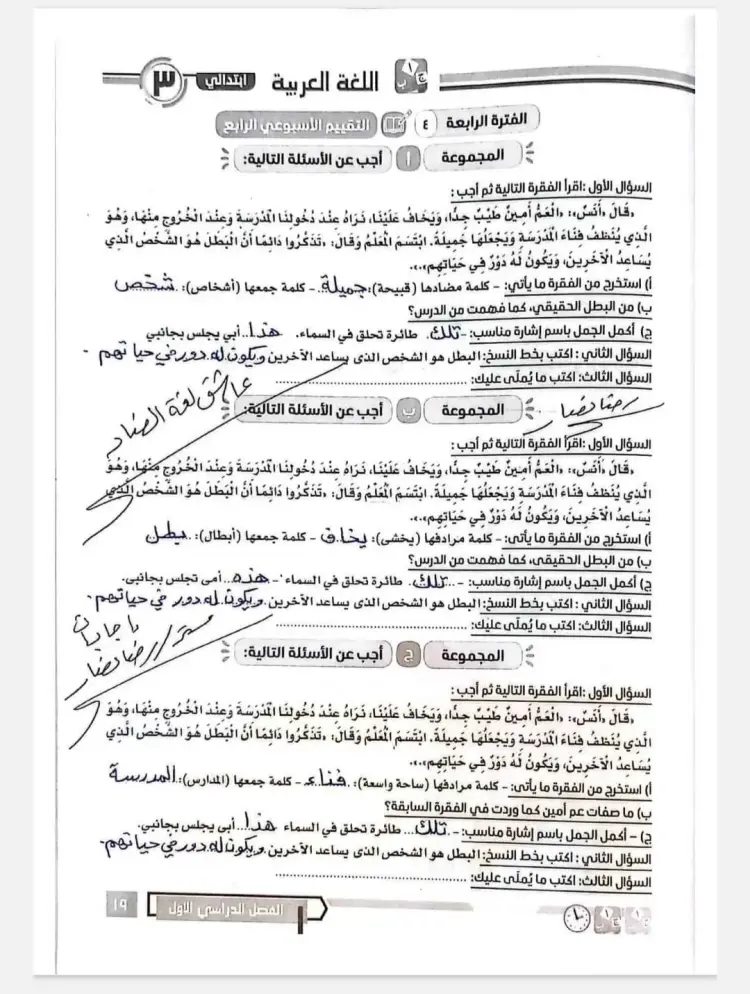 اللغة العربية ٣ ابتدائي
الفترة الرابعة ٤ التقييم الأسبوعي الرابع
المجموعة أ أجب عن الأسئلة التالية:
السؤال الأول :اقرأ الفقرة التالية ثم أجب :
قَالَ «أَنَسٌ»: «الْعَمُّ أَمِينٌ طَيِّبٌ جِدًّا، وَيَخَافُ عَلَيْنَا، نَرَاهُ عِنْدَ دُخُولِنَا الْمَدْرَسَةَ وَعِنْدَ الْخُرُوجِ مِنْهَا، وَهُوَ
الَّذِي يُنَظِّفُ فِنَاءَ الْمَدْرَسَةِ وَيَجْعَلُهَا جَمِيلَةً. ابْتَسَمَ الْمُعَلِّمُ وَقَالَ: «تَذَكَّرُوا دَائِمًا أَنَّ الْبَطَلَ هُوَ الشَّخْصُ الَّذِي
يُسَاعِدُ الْآخَرِينَ، وَيَكُونُ لَهُ دَوْرٌ فِي حَيَاتِهِم».
أ) استخرج من الفقرة ما يأتي: - كلمة مضادها (قبيحة): جميلة - كلمة جمعها (أشخاص): شخص
ب) من البطل الحقيقي، كما فهمت من الدرس؟
ج) أكمل الجمل باسم إشارة مناسب: - تلك طائرة تحلق في السماء. هذا أبي يجلس بجانبي
السؤال الثاني : اكتب بخط النسخ: البطل هو الشخص الذى يساعد الآخرين ويكون له دور في حياتهم .
السؤال الثالث: اكتب ما يُملَى عليك:
عاشق لغة الضاد
المجموعة ب أجب عن الأسئلة التالية:
رضا نصار
السؤال الأول: اقرأ الفقرة التالية ثم أجب :
قَالَ «أَنَسٌ»: «الْعَمُّ أَمِينٌ طَيِّبٌ جِدًّا، وَيَخَافُ عَلَيْنَا، نَرَاهُ عِنْدَ دُخُولِنَا الْمَدْرَسَةَ وَعِنْدَ الْخُرُوجِ مِنْهَا، وَهُوَ
الَّذِي يُنَظِّفُ فِنَاءَ الْمَدْرَسَةِ وَيَجْعَلُهَا جَمِيلَةً. ابْتَسَمَ الْمُعَلِّمُ وَقَالَ: «تَذَكَّرُوا دَائِمًا أَنَّ الْبَطَلَ هُوَ الشَّخْصُ الَّذِي
يُسَاعِدُ الْآخَرِينَ، وَيَكُونُ لَهُ دَوْرٌ فِي حَيَاتِهِم».
أ) استخرج من الفقرة ما يأتى: - كلمة مرادفها (يخشى): يخاف - كلمة جمعها (أبطال): بطل
ب) من البطل الحقيقي، كما فهمت من الدرس؟
ج) أكمل الجمل باسم إشارة مناسب: - تلك طائرة تحلق في السماء - هذه أمى تجلس بجانبي.
السؤال الثاني : اكتب بخط النسخ: البطل هو الشخص الذى يساعد الآخرين ويكون له دور في حياتهم .
السؤال الثالث: اكتب ما يُملَى عليك:
مستر / رضا نصار
المجموعة ج أجب عن الأسئلة التالية:
السؤال الأول: اقرأ الفقرة التالية ثم أجب :
قَالَ «أَنَسٌ»: «الْعَمُّ أَمِينٌ طَيِّبٌ جِدًّا، وَيَخَافُ عَلَيْنَا، نَرَاهُ عِنْدَ دُخُولِنَا الْمَدْرَسَةَ وَعِنْدَ الْخُرُوجِ مِنْهَا، وَهُوَ
الَّذِي يُنَظِّفُ فِنَاءَ الْمَدْرَسَةِ وَيَجْعَلُهَا جَمِيلَةً. ابْتَسَمَ الْمُعَلِّمُ وَقَالَ: «تَذَكَّرُوا دَائِمًا أَنَّ الْبَطَلَ هُوَ الشَّخْصُ الَّذِي
يُسَاعِدُ الْآخَرِينَ، وَيَكُونُ لَهُ دَوْرٌ فِي حَيَاتِهِم».
أ) استخرج من الفقرة ما يأتى:- كلمة مرادفها (ساحة واسعة): فناء - كلمة جمعها (المدارس): المدرسة
ب) ما صفات عم أمين كما وردت في الفقرة السابقة؟
ج) - أكمل الجمل باسم إشارة مناسب: - تلك طائرة تحلق في السماء هذا أبى يجلس بجانبي.
السؤال الثاني : اكتب بخط النسخ: البطل هو الشخص الذى يساعد الآخرين ويكون له دور في حياتهم .
السؤال الثالث: اكتب ما يُملَى عليك:
الفصل الدراسي الأول ١٩